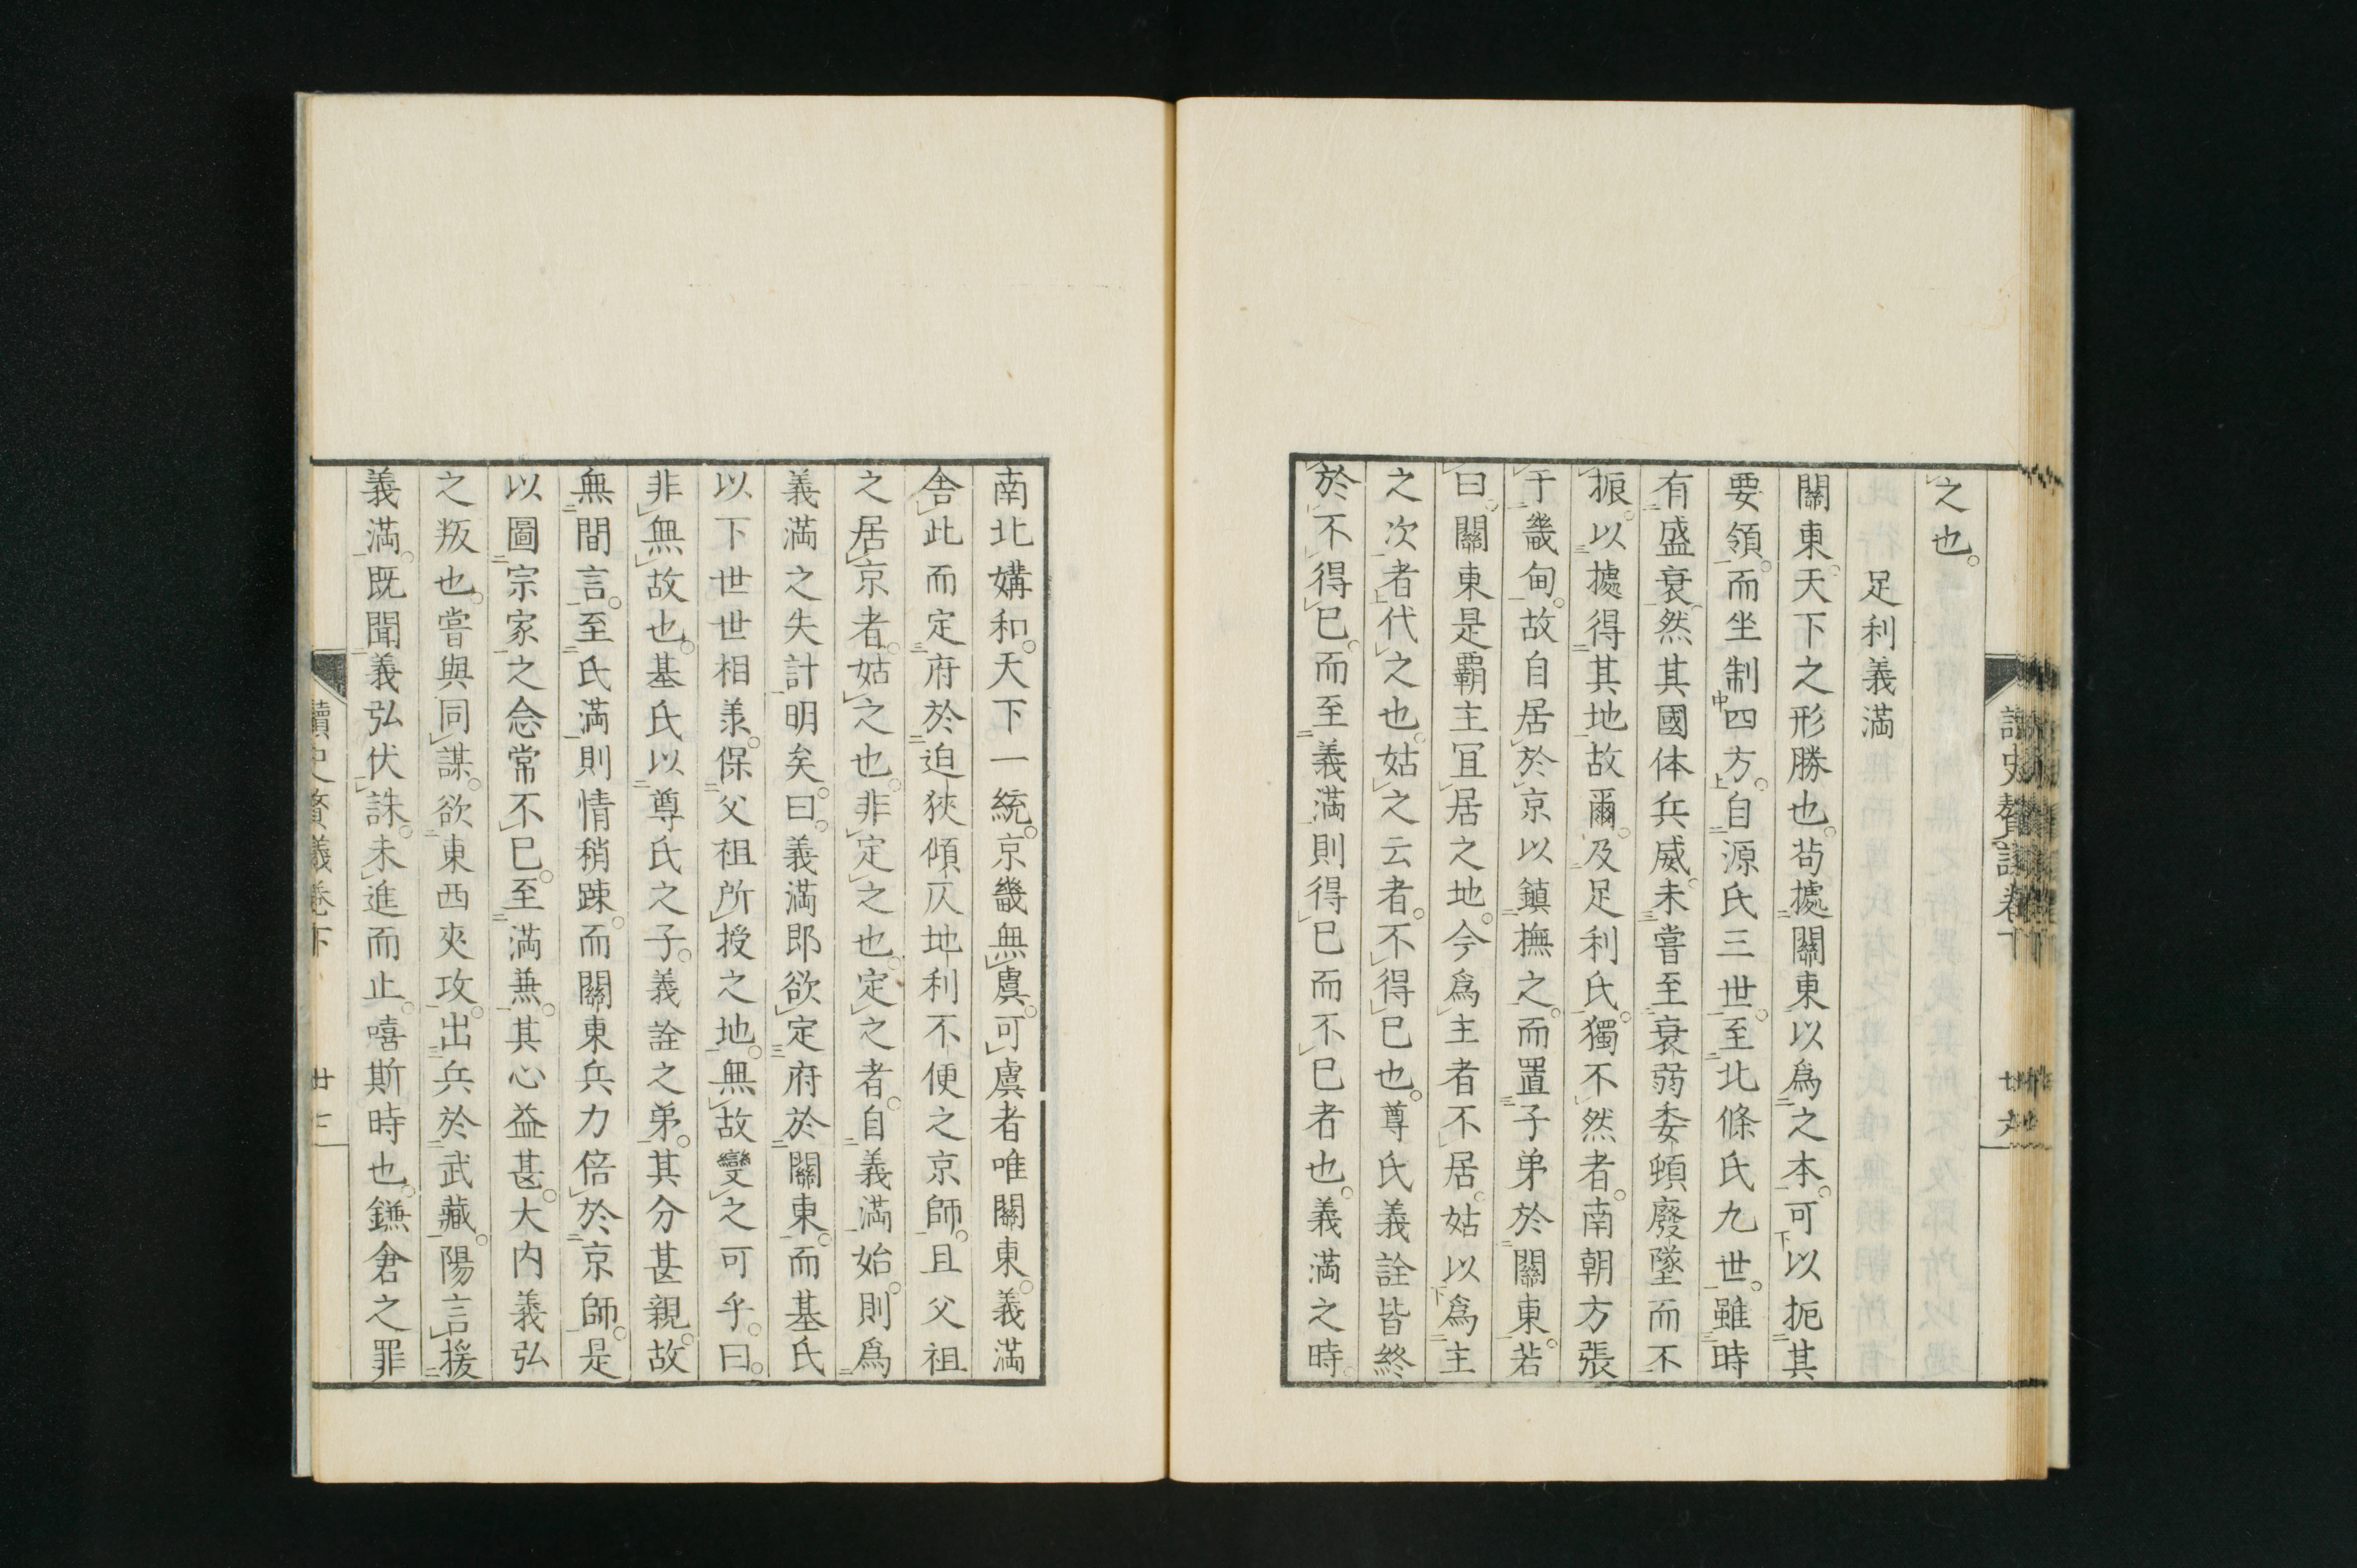 之也。
足利義満
關東。天下之形勝也。苟據關東以爲之本。可以扼其
要領。而坐制四方。自源氏三世。至北條氏九世。雖時
有盛衰。然其國体兵威。未嘗至衰弱委頓廢墜而不
振。以據得其地故爾。及足利氏。獨不然者。南朝方張
于畿甸。故自居於京以鎮撫之。而置子弟於關東。若
曰。關東是覇主冝居之地。今爲主者不居。姑以爲主
之次者代之也。姑之云者。不得已也。尊氏義詮皆終
於不得已。而至義満則得已而不已者也。義満之時。
南北媾和。天下一統。京畿無虞。可虞者唯關東。義満
舎此而定府於迫狹傾仄地利不便之京師。且父祖
之居京者。姑之也。非定之也。定之者。自義満始。則爲
義満之失計明矣。曰。義満即欲定府於關東。而基氏
以下世世相羕。保父祖所授之地。無故變之可乎。曰。
非無故也。基氏以尊氏之子。義詮之弟。其分甚親。故
無間言。至氏満則情稍踈。而關東兵力倍於京師。是
以圖宗家之念常不已。至満兼。其心益甚。大内義弘
之叛也。嘗與同謀。欲東西夾攻。出兵於武藏。陽言援
義満。既聞義弘伏誅。未進而止。嘻斯時也。鎌倉之罪
讀史贅議卷下
廿三